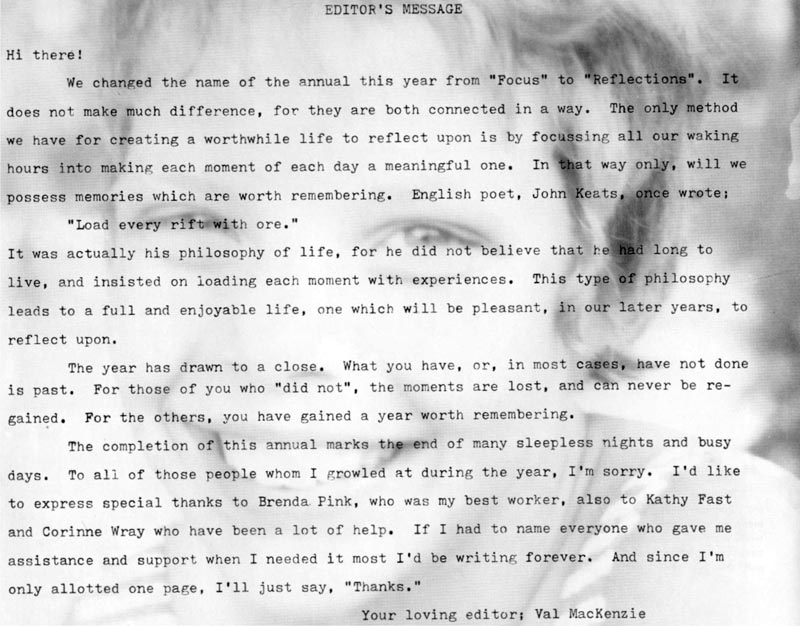 EDITOR'S MESSAGE
Hi there!
We changed the name of the annual this year from "Focus" to "Reflections". It
does not make much difference, for they are both connected in a way. The only method
we have for creating a worthwhile life to reflect upon is by focussing all our waking
hours into making each moment of each day a meaningful one. In that way only, will we
possess memories which are worth remembering. English poet, John Keats, once wrote;
"Load every rift with ore."
It was actually his philosophy of life, for he did not believe that he had long to
live, and insisted on loading each moment with experiences. This type of philosophy
leads to a full and enjoyable life, one which will be pleasant, in our later years, to
reflect upon.
The year has drawn to a close. What you have, or, in most cases, have not done
is past. For those of you who "did not", the moments are lost, and can never be re-
gained. For the others, you have gained a year worth remembering.
The completion of this annual marks the end of many sleepless nights and busy
days. To all of those people whom I growled at during the year, I'm sorry. I'd like
to express special thanks to Brenda Pink, who was my best worker, also to Kathy Fast
and Corinne Wray who have been a lot of help. If I had to name everyone who gave me
assistance and support when I needed it most I'd be writing forever. And since I'm
only allotted one page, I'll just say, "Thanks."
Your loving editor; Val MacKenzie